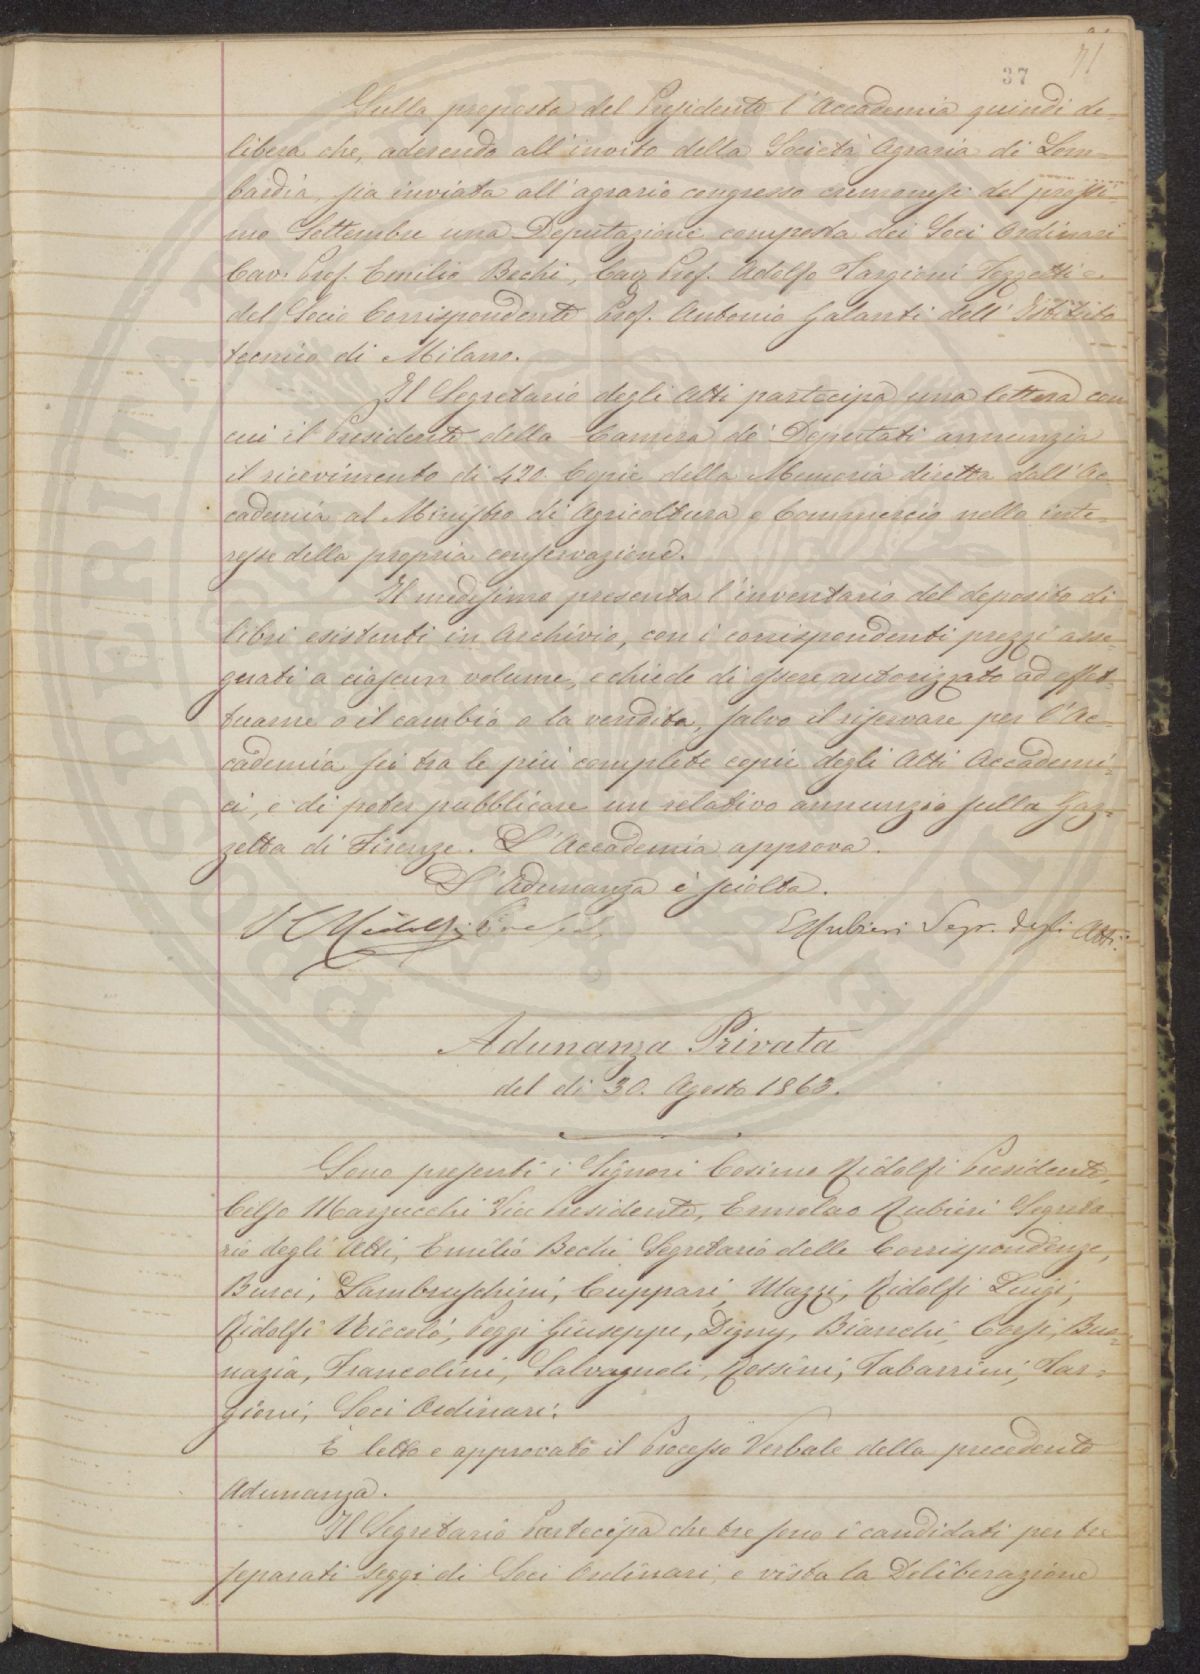 37 71
Sulla proposta del Presidente l'Accademia quindi de-
libera che, aderendo all'invito della Società Agraria di Lom-
bardia, sia inviata all'agrario congresso cremonese del prossi-
mo Settembre una Deputazione composta dei Soci Ordinari
Cav. Prof. Emilio Bechi, Cav. Prof. Adolfo Targioni Tozzetti e
del Socio Corrispondente Prof. Antonio Galanti dell'Istituto
tecnico di Milano.
Il Segretario degli Atti partecipa una lettera con
cui il Presidente della Camera de' Deputati annunzia
il ricevimento di 420. Copie della Memoria diretta dall'Ac-
cademia al Ministro di Agricoltura e Commercio nello inte-
resse della propria conservazione.
Il medesimo presenta l'inventario del deposito di
libri esistenti in Archivio, con i corrispondenti prezzi asse-
gnati a ciascun volume, e chiede di essere autorizzato ad effet-
tuarne o il cambio o la vendita, salvo il riservare per l'Ac-
cademia sei tra le più complete copie degli Atti Accademi-
ci, e di poter pubblicare un relativo annunzio sulla Gaz-
zetta di Firenze. L'Accademia approva.
L'Adunanza è sciolta.
C Ridolfi Pres. E Rubieri Segr. degli Atti.
Adunanza Privata
del dì 30. Agosto 1863.
Sono presenti i Signori Cosimo Ridolfi Presidente,
Celso Marzucchi Vice Presidente, Ermolao Rubieri Segreta
rio degli Atti, Emilio Bechi Segretario delle Corrispondenze,
Burci, Lambruschini, Cuppari, Mazzi, Ridolfi Luigi,
Ridolfi Niccolò, Poggi Giuseppe, Digny, Bianchi, Corsi, Buo-
nazia, Francolini, Salvagnoli, Rossini, Tabarrini, Tar-
gioni, Soci Ordinari.
È letto e approvato il Processo Verbale della precedente
Adunanza.
Il Segretario Partecipa che tre sono i candidati per tre
separati seggi di Soci Ordinari, e vista la Deliberazione